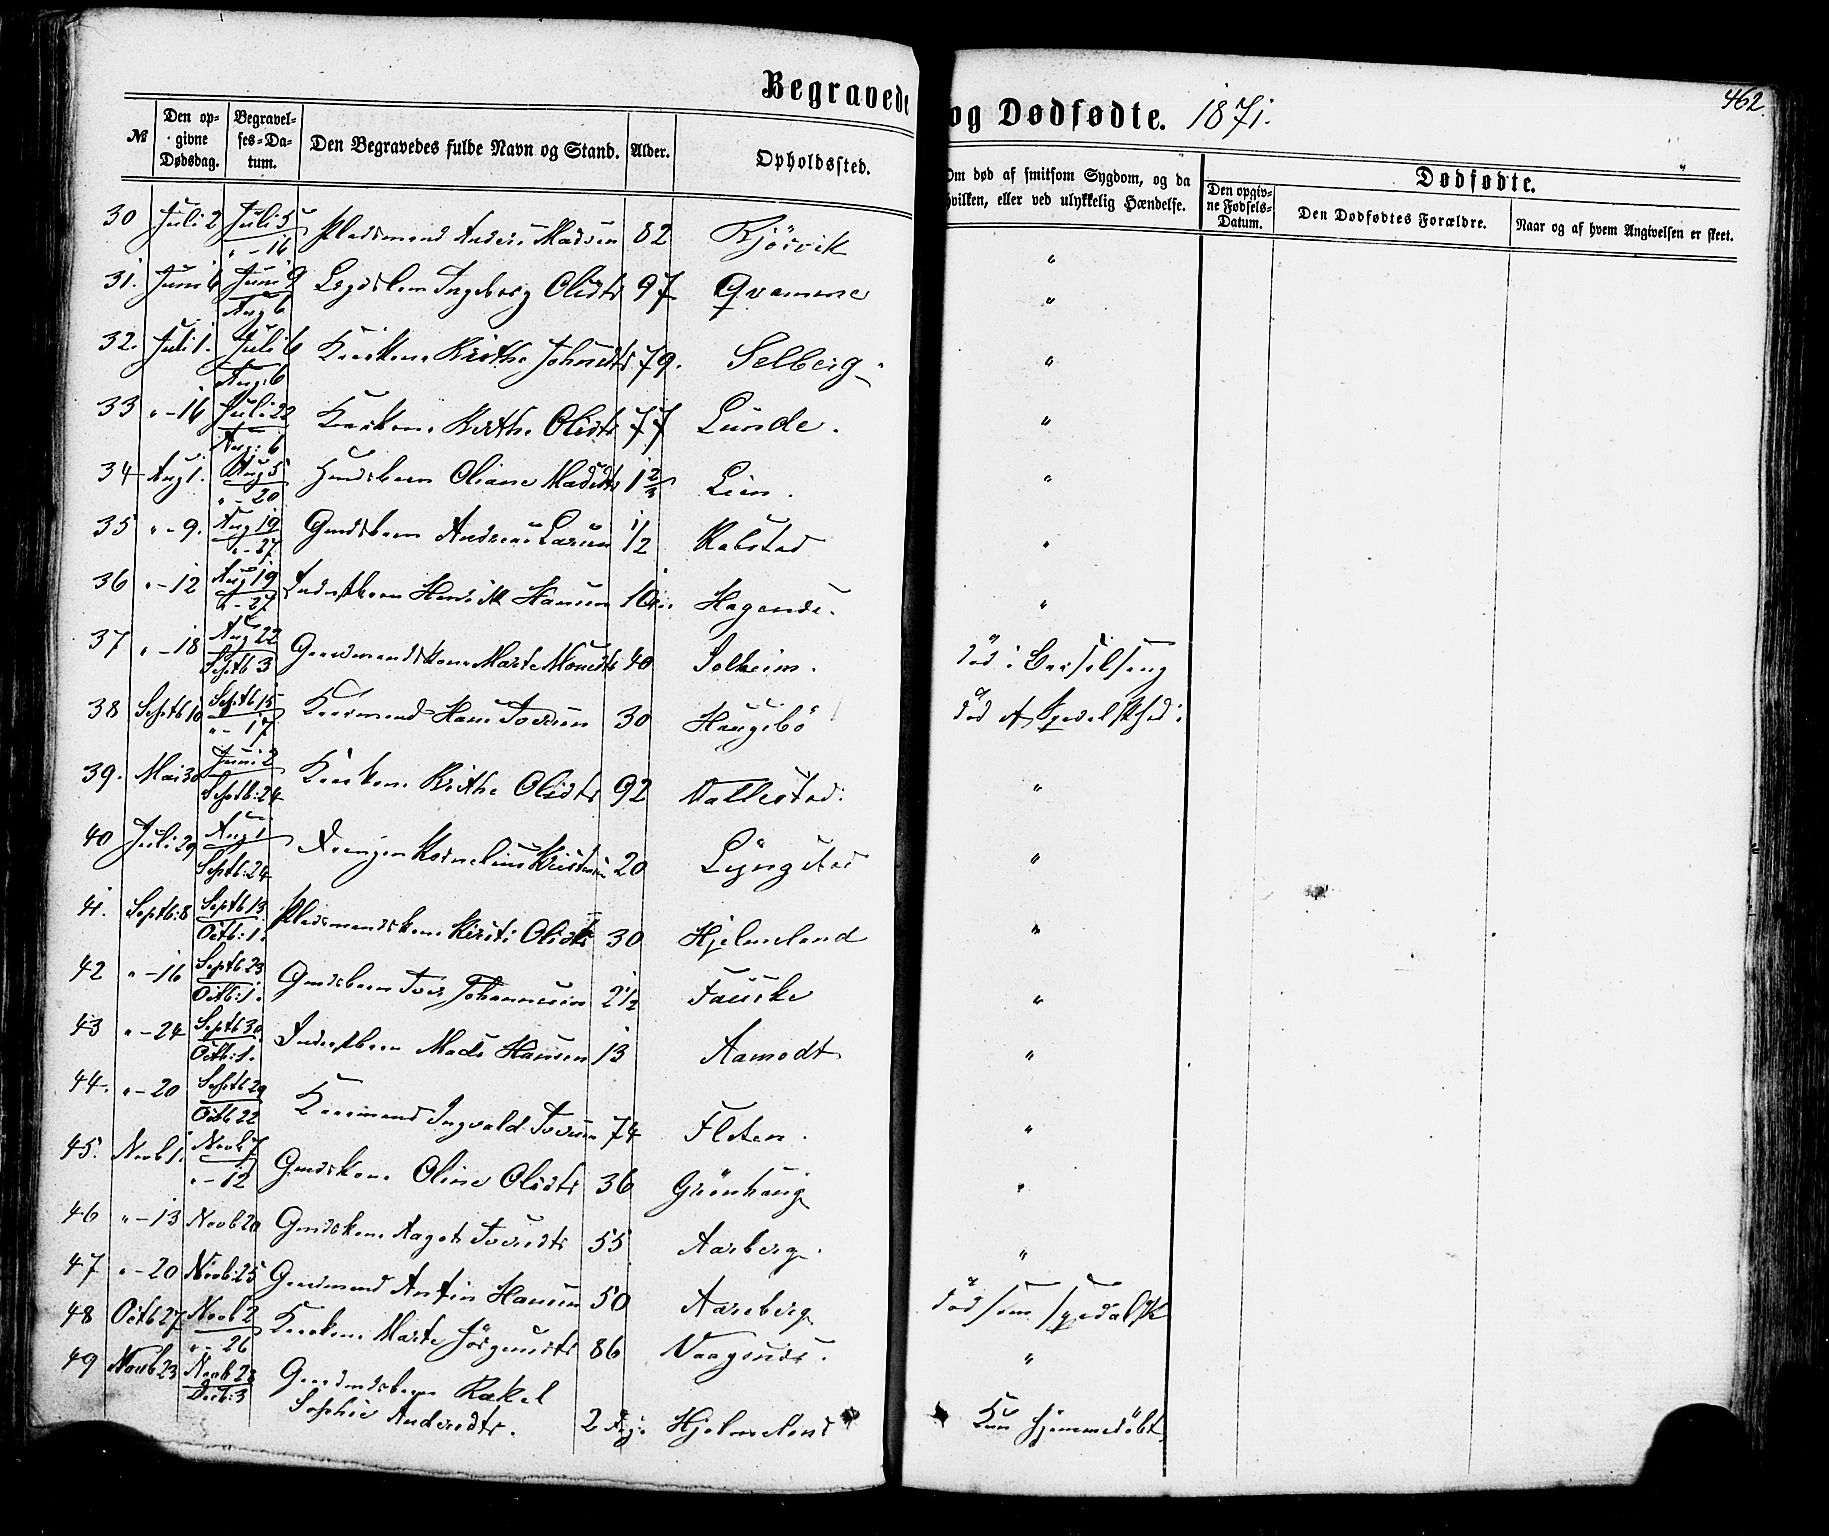 Begravede og Dødfødte. 1871.
462.
№ Den opgivne Dødsdag. Begravelses-Datum. Den Begravedes fulde Navn og Stand. Alder. Opholdssted. Om død af smitsom Sygdom, og da hvilken, eller ved ulykkelig Hændelse. Dødfødte. Den opgivne Fødsels-Datum. Den Dødfødtes Forældre. Naar og af hvem Angivelsen er skeet.
30 Juli 2 Juli 5 " - 16 Pladsmand Anders Madsen 82 Kjörvik "
31. Juni 6 Juni 9 Aug 6 Lægdslem Ingeborg Olsdtr 97 Qvamme "
32. Juli 1. Juli 6 Aug: 6 Kaarkone Brithe Johnsdtr 79. Selberg "
33 " - 16 Juli 22 Aug: 6 Kaarkone Berthe Olsdtr 77 Lunde. "
34 Aug 1. Aug 5 " - 20 Gmdsbarn Oliane Madsdtr 1 2/3 Lien. "
35 " - 9. Aug 19 " - 27 Gmdsbarn Andreas Larsen 1/2 Rabstad "
36 " - 12 Aug 19 " - 27 Inderstbarn Henrik Hansen Hagenes. "
37 " - 18 Aug 22 Septb 3 Gaardmandskone Marte Monsdtr 40 Solheim. död i Barselseng
38 Septb 10 Septb 15 " - 17 Kaarmand Hans Iversen 30 Haugebö död af Spedalskhed.
39. Mai 30 Juni 2 Septb: 24 Kaarkone Brithe Olsdtr 92 Vallestad. "
40 Juli 29 Aug 1 Septb: 24 Drengen Kornelius Kristensen 20 Lÿngstad "
41. Septb: 8 Septb 13 Octb: 1. Pladsmandskone Kirsti Olsdtr 30 Hjelmeland "
42 " - 16 Septb 23 Octb: 1. Gmdsbarn Iver Johannesen 2 1/2 Fauske "
43 " - 24 Septb 30 Octb: 1. Inderstbarn Mads Hansen 13 Aamodt "
44. " - 20 Septb 29 Octb 22 Kaarmand Ingvald Iversen 74 Fleten. "
45. Novb 1. Novb 7 " - 12 Gmdskone Oline Olsdtr 36 Grönhaug "
46 " - 13 Novb 20 Gmdskone Aagot Iversdtr 55 Aarberg. "
47 " - 20 Novb: 25 Gaardmand Antin Hansen 50 Aareberg död som spedalsk
48 Octb 27 Novb 2 " - 26 Kaarkone Marte Jörgensdtr 86 Vaagenes. "
49 Novb 23 Novb 28 Decb: 3 Gaardmdsbarn Rakel
Sophie Andersdtr. 2 Dg. Hjelmeland Kun hjemmedöbt.